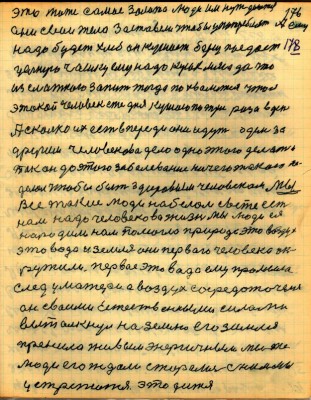 это тоже самое золото люди им нуждаются 176
они своих тело заставели чтобы употреблят
надо будет хлеб он кушает борщ поедает 178
целую чашку ему надо кусок мяса да что
из сладкого запит тогда похвалится что я
этакой человек сте дня кушаю по три раза в ден
А сколко их ест впереди они идут один за
другим человекова дело одно этого делат
так он до этого заболевание ничего такого не
делал чтобы быт здоровым человеком. Мы
все такие люди на белом свете ест
нам надо человекова жизн мы люди ея
народили нам помогло природа это воздух
это вода и земля они первого человека ок
ружили, первое это вода ему промыла
след у матери а воздух сосредоточено
он своими естественными силами
вытолкнул на землю его земля
приняла живым энергичным мы же
люди его ждали старелис с ними
встретится. это дитя